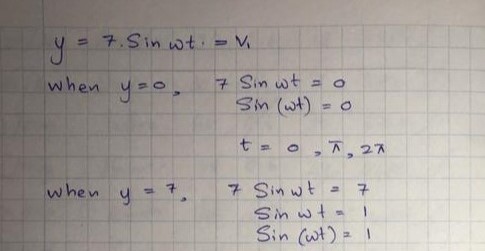 y = 7. Sin ωt. = V₁
when y = 0, 7 Sin ωt = 0
Sin (ωt) = 0
t = 0, π, 2π
when y = 7, 7 Sin ωt = 7
Sin ωt = 1
Sin (ωt) = 1